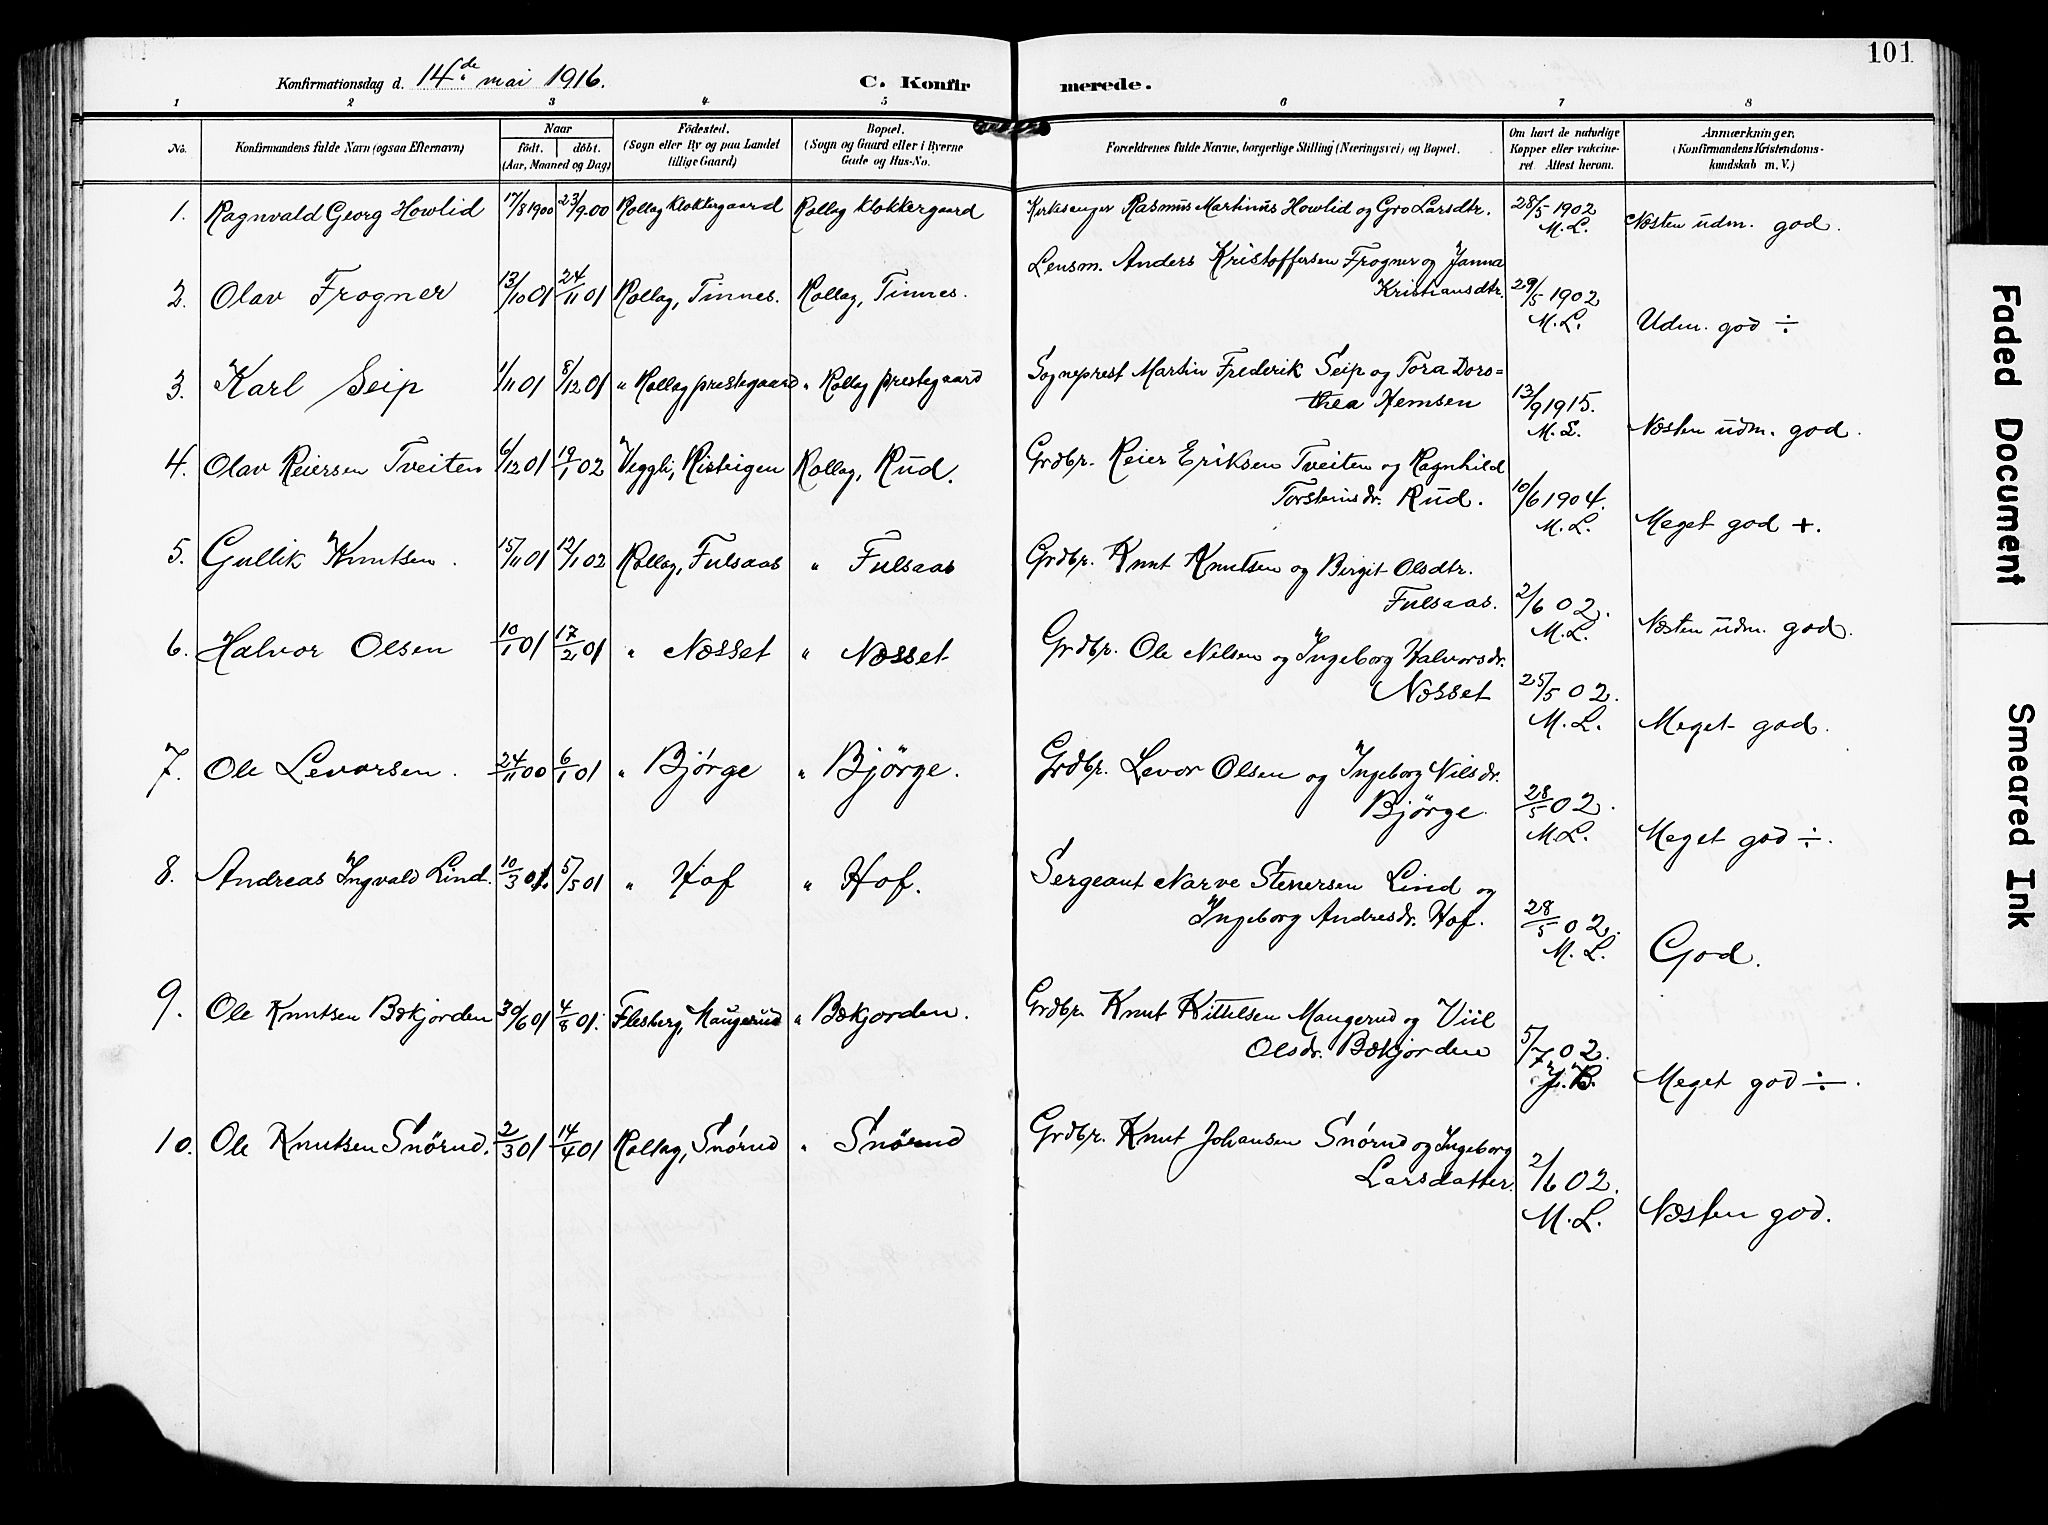 101
Konfirmationsdag d. 14de mai 1916.
C. Konfirmerede.
1 2 3 4 5 6 7 8
No.
Konfirmandens fulde Navn (ogsaa Efternavn)
Naar
födt. döbt.
(Aar, Maaned og Dag)
Födested.
(Sogn eller By og paa Landet
tillige Gaard)
Bopæl.
(Sogn og Gaard eller i Byerne
Gade og Hus-No.
Forældrenes fulde Navne, borgerlige Stilling (Næringsvei) og Bopæl.
Om havt de naturlige
Kopper eller vakcine-
ret Attest herom.
Anmærkninger.
(Konfirmandens Kristendoms-
kundskab m. V.)
1. Ragnvald Georg Howlid 17/8 1900 23/9.00 Rollag Klokkergaard Rollag Klokkergaard Kirkesanger Rasmus Martinus Howlid og Gro Larsdtr. 28/5 1902 Næsten udm. god.
M.L.
Lensm. Anders Kristoffersen Frogner og Janna
2. Olav Frogner 13/10 01 24/11 01 Rollag, Tinnes. Rollag, Tinnes. Kristiansdtr. 29/5 1902
M.L. Udm. god ÷
3. Karl Seip 1/11 01 8/12 01 " Rollag prestegaard " Rollag prestegaard Sogneprest Martin Frederik Seip og Tora Doro=
thea Hemsen 13/9 1915.
M.L. Næsten udm. god.
4. Olav Reiersen Tveiten 6/12 01 19/1 02 Veggli, Risteigen Rollag, Rud. Grdbr. Reier Eriksen Tveiten og Ragnhild
Torsteinsdr. Rud. 10/6 1904.
M.L. Meget god +.
5. Gullik Knutsen. 15/11 01 12/1 02 Rollag, Fulsaas " Fulsaas Grdbr. Knut Knutsen og Birgit Olsdtr.
Fulsaas. 2/6 02.
M.L. Næsten udm. god.
6. Halvor Olsen 10/1 01 17/2 01 " Næsset " Næsset Grdbr. Ole Nilsen og Ingeborg Halvorsdr.
Næsset 25/5 02.
M.L. Meget god.
7. Ole Levorsen. 24/11 00 6/1 01 " Bjørge " Bjørge. Grdbr. Levor Olsen og Ingeborg Nilsdr.
Bjørge. 28/5 02.
M.L. Meget god ÷.
8. Andreas Ingvald Lind. 10/3 01. 5/5 01 " Hof " Hof. Sergeant Narve Stenersen Lind og
Ingeborg Andresdr. Hof. 28/5 02.
M.L. God.
9. Ole Knutsen Bækjorden 30/6 01 4/8 01. Flesberg, Maugerud " Bækjorden. Grdbr. Knut Kittelsen Maugerud og Viil
Olsdr. Bækjorden 5/7 02.
J. B. Meget god ÷.
10. Ole Knutsen Snörud. 2/3 01 14/4 01 Rollag, Snörud " Snörud Grdbr. Knut Johansen Snörud og Ingeborg
Larsdatter. 2/6 02.
M.L. Næsten god.
Faded Document
Smeared Ink